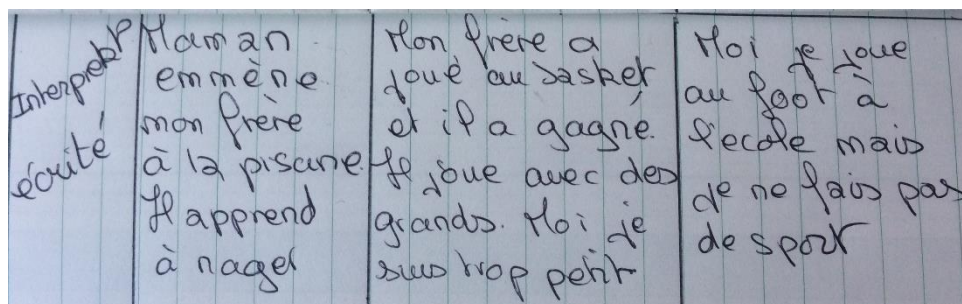 Interpret
écrite
Maman
emmène
mon frère
à la piscine.
Il apprend
à nager
Mon frère a
joué au basket
et il a gagné.
Il joue avec des
grands. Moi je
suis trop petit
Moi je joue
au foot à
l'ecole mais
je ne fais pas
de sport